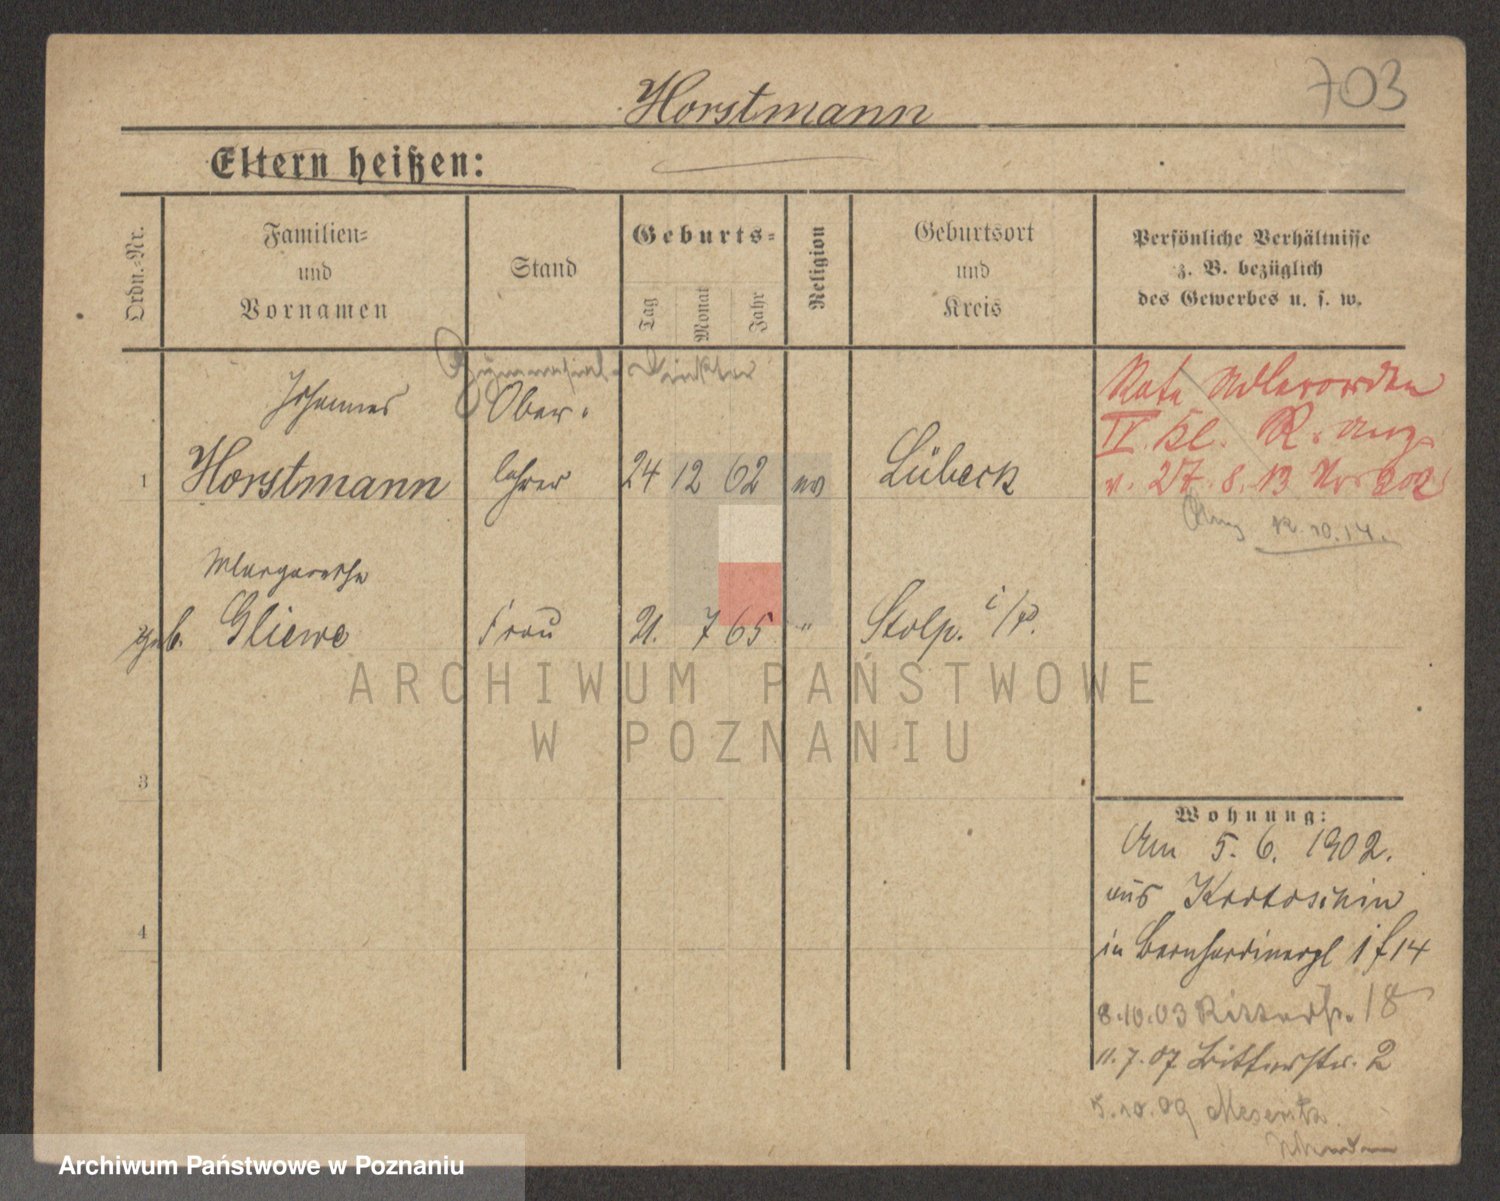 703
Horstmann
Eltern heißen:
Ordn.-Nr.
Familien-
und
Vornamen
Stand
Geburts-
Tag
Monat
Jahr
Religion
Geburtsort
und
Kreis
Persönliche Verhältnisse
z. B. bezüglich
des Gewerbes u. s. w.
Gymnasial-Direktor
Johannes
Ober-
1 Horstmann lehrer 24 12 62 ev Lübeck
Rote Adlerorden
IV. Kl. R. Anz.
v. 27. 8. 13 Nr 202
Margarethe
geb. Gliewe Frau 21. 7 65 " Stolp. i/P.
ARCHIWUM PAŃSTWOWE
W POZNANIU
3
4
Wohnung:
Am 5. 6. 1902.
aus Krotoschin
in Bernhardinerpl 1 f 14
8.10.03 Ritterstr. 18
11.7.07 Ritterstr. 2
5.10.09 Meseritz
Archiwum Państwowe w Poznaniu